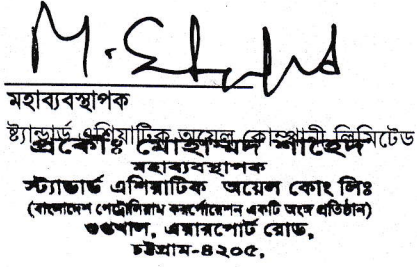 মহাব্যবস্থাপক
ষ্ট্যান্ডার্ড এশিয়াটিক অয়েল কোম্পানী লিমিটেড
প্রকৌঃ মোহাম্মদ শাহেদ
মহাব্যবস্থাপক
স্ট্যান্ডার্ড এশিয়াটিক অয়েল কোং লিঃ
(বাংলাদেশ পেট্রোলিয়াম করপোরেশন একটি অংগ প্রতিষ্ঠান)
গুপ্তখাল, এয়ারপোর্ট রোড,
চট্টগ্রাম-৪২০৫,